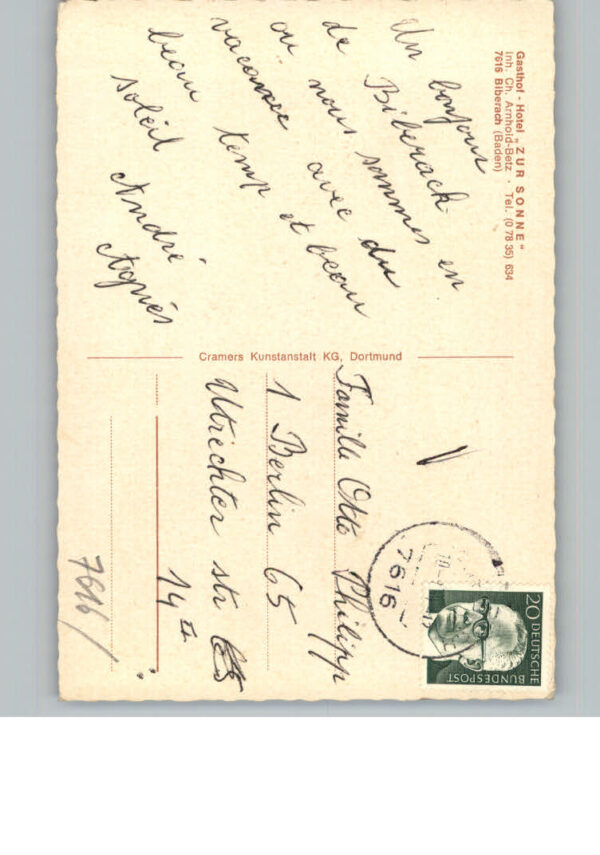 Gasthof - Hotel „ZUR SONNE“
Inh. Ch. Arnhold-Betz · Tel. (0 78 35) 634
7616 Biberach (Baden)
Un bonjour
de Biberach
ou nous sommes en
vacances avec du
beau temp et beau
soleil André
Agnès
Cramers Kunstanstalt KG, Dortmund
Famille Otto Philipp
1 Berlin 65
Utrechter str
14 II
7616/
7616
20 DEUTSCHE
BUNDESPOST